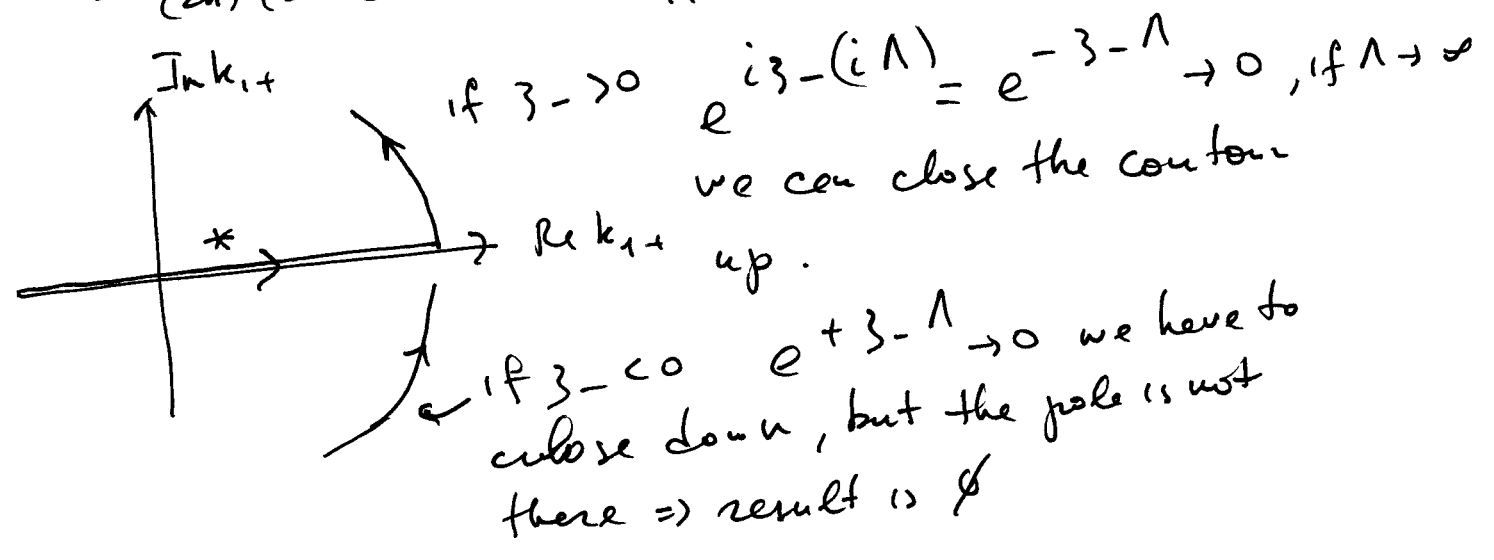 Im k₁₊
if 3₋ >0 e^{i3₋(iΛ)} = e^{-3₋Λ} → 0, if Λ → ∞
we can close the contour
* Re k₁₊ up.
if 3₋ <0 e^{+3₋Λ} → 0 we have to
close down, but the pole is not
there => result is ∅